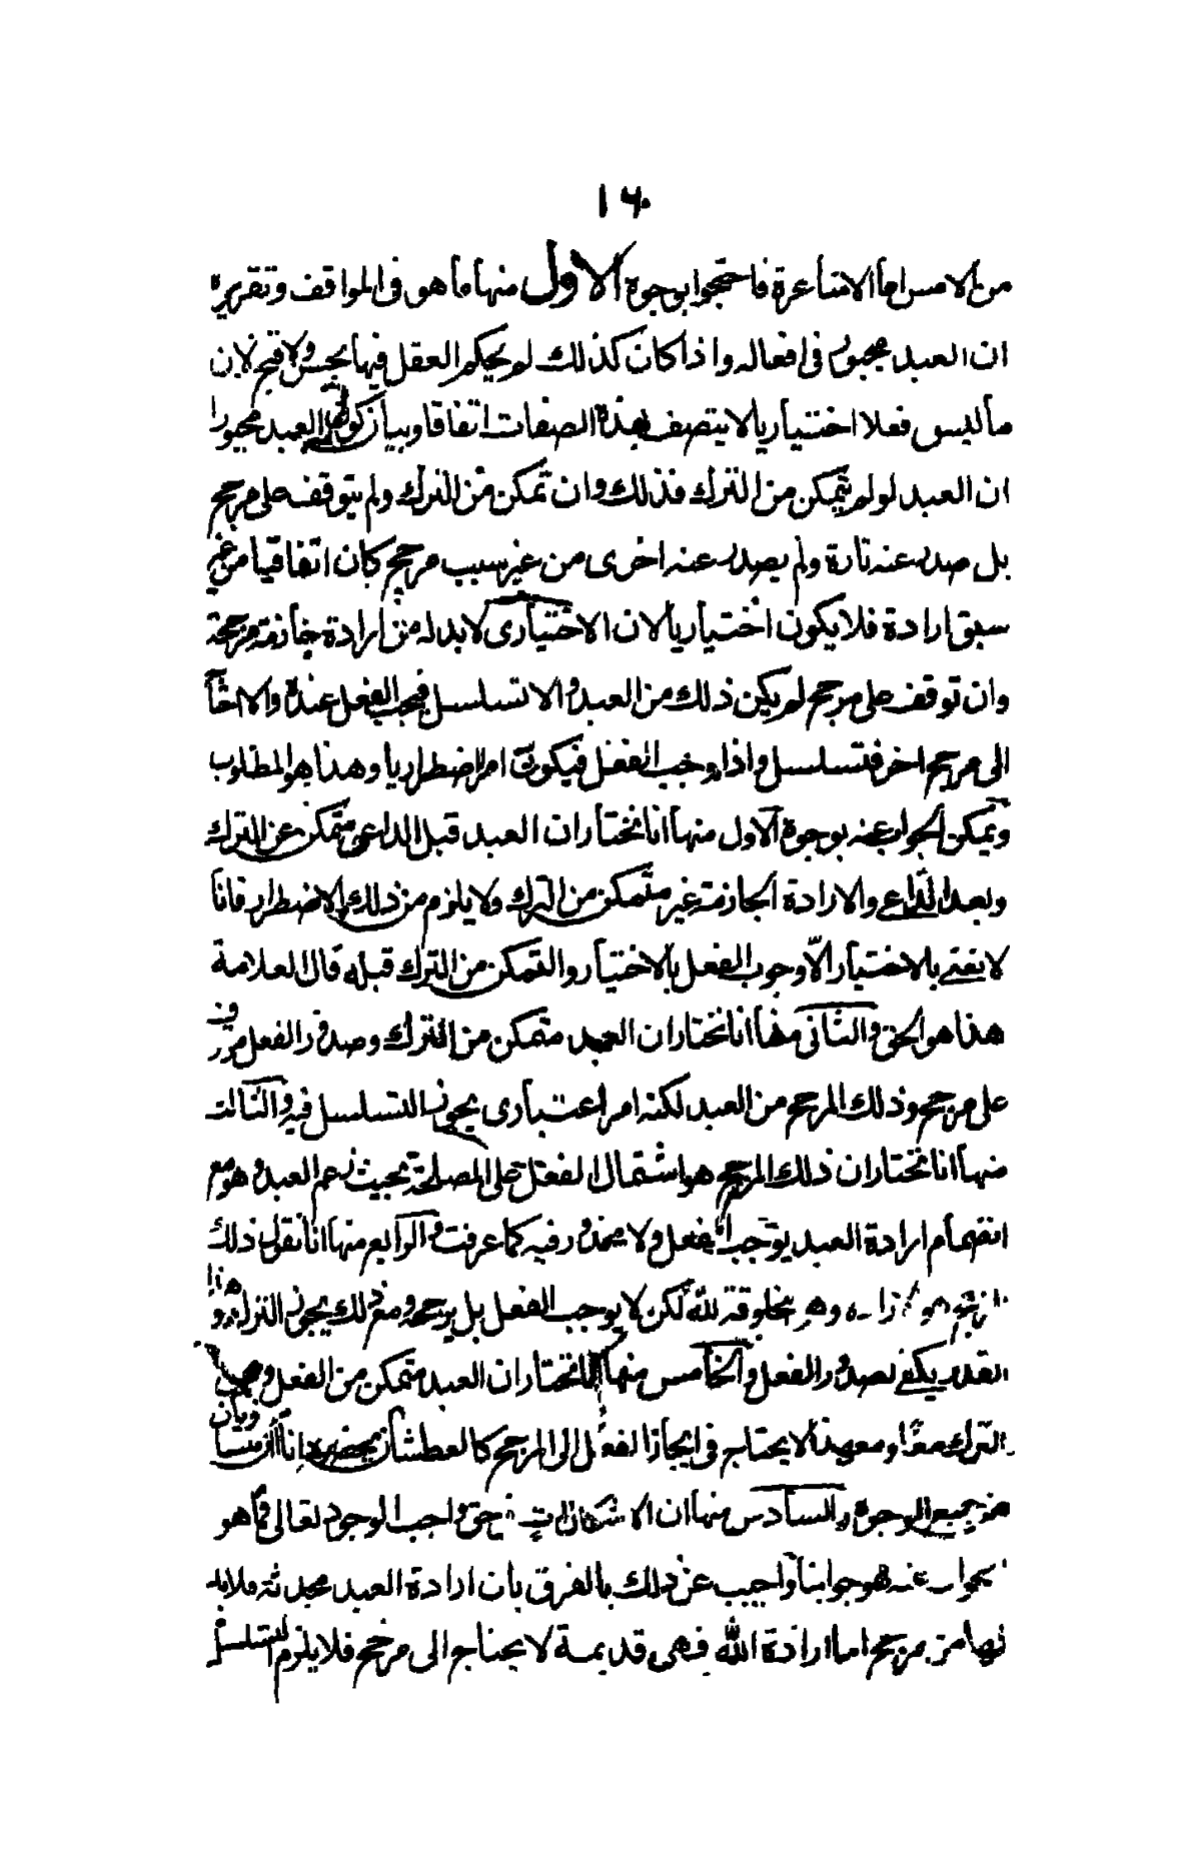 ١٦٠
من الامس اما الاشاعرة فاحتجوا بوجوه الاول منها ما هو فى المواقف وتقريره
ان العبد مجبور فى افعاله واذا كان كذلك لم يحكم العقل فيها بحسن ولا قبح لان
ما ليس فعلا اختياريا لا يتصف بهذه الصفات اتفاقا وبيان كون العبد مجبورا
ان العبد لو لم يتمكن من الترك فذلك وان تمكن من الترك ولم يتوقف على مرجح
بل صدر عنه تارة ولم يصدر عنه اخرى من غير سبب مرجح كان اتفاقيا من غير
سبق ارادة فلا يكون اختياريا لان الاختيارى لا بد له من ارادة جازمة مرجحة
وان توقف على مرجح لم يكن ذلك من العبد والا تسلسل فيجب الفعل عنده والا احتاج
الى مرجح اخر فتسلسل واذا وجب الفعل فيكون امرا ضطراريا وهذا هو المطلوب
ويمكن الجواب عنه بوجوه الاول منها انا نختار ان العبد قبل الداعى متمكن عن الترك
وبعد الداعى والارادة الجازمة غير متمكن من الترك ولا يلزم من ذلك الاضطرار فانا
لا نعنى بالاختيار الا وجوب الفعل بالاختيار والتمكن من الترك قبله قال العلامة
هذا هو الحق والثانى منها انا نختار ان العبد متمكن من الترك وصدور الفعل موقوف
على مرجح وذلك المرجح من العبد لكنه امر اعتبارى يجوز التسلسل فيه والثالث
منها انا نختار ان ذلك المرجح هو اشتمال الفعل على المصلحة بحيث زعم العبد وهو مع
انضمام ارادة العبد يوجب الفعل ولا محذور فيه كما عرفت والرابع منها انا نقل ذلك
وهى مخلوقة لله لكن لا يوجب الفعل بل يرجحه ومع ذلك يجوز الترك وهذا
القدر يكفى لصدور الفعل والخامس منها انا نختار ان العبد متمكن من الفعل و
الترك معا ومع هذا لا يحتاج فى ايجاز الفعل الى المرجح كالعطشان يحضره اناآن متساويان
من جميع الوجوه والسادس منها ان الاشكال ات فى حق واجب الوجود تعالى فما هو
الجواب عنه هو جوابنا واجيب عن ذلك بالفرق بان ارادة العبد محدثة فلا بد
لها من مرجح اما ارادة الله فهى قديمة لا يحتاج الى مرجح فلا يلزم التسلسل